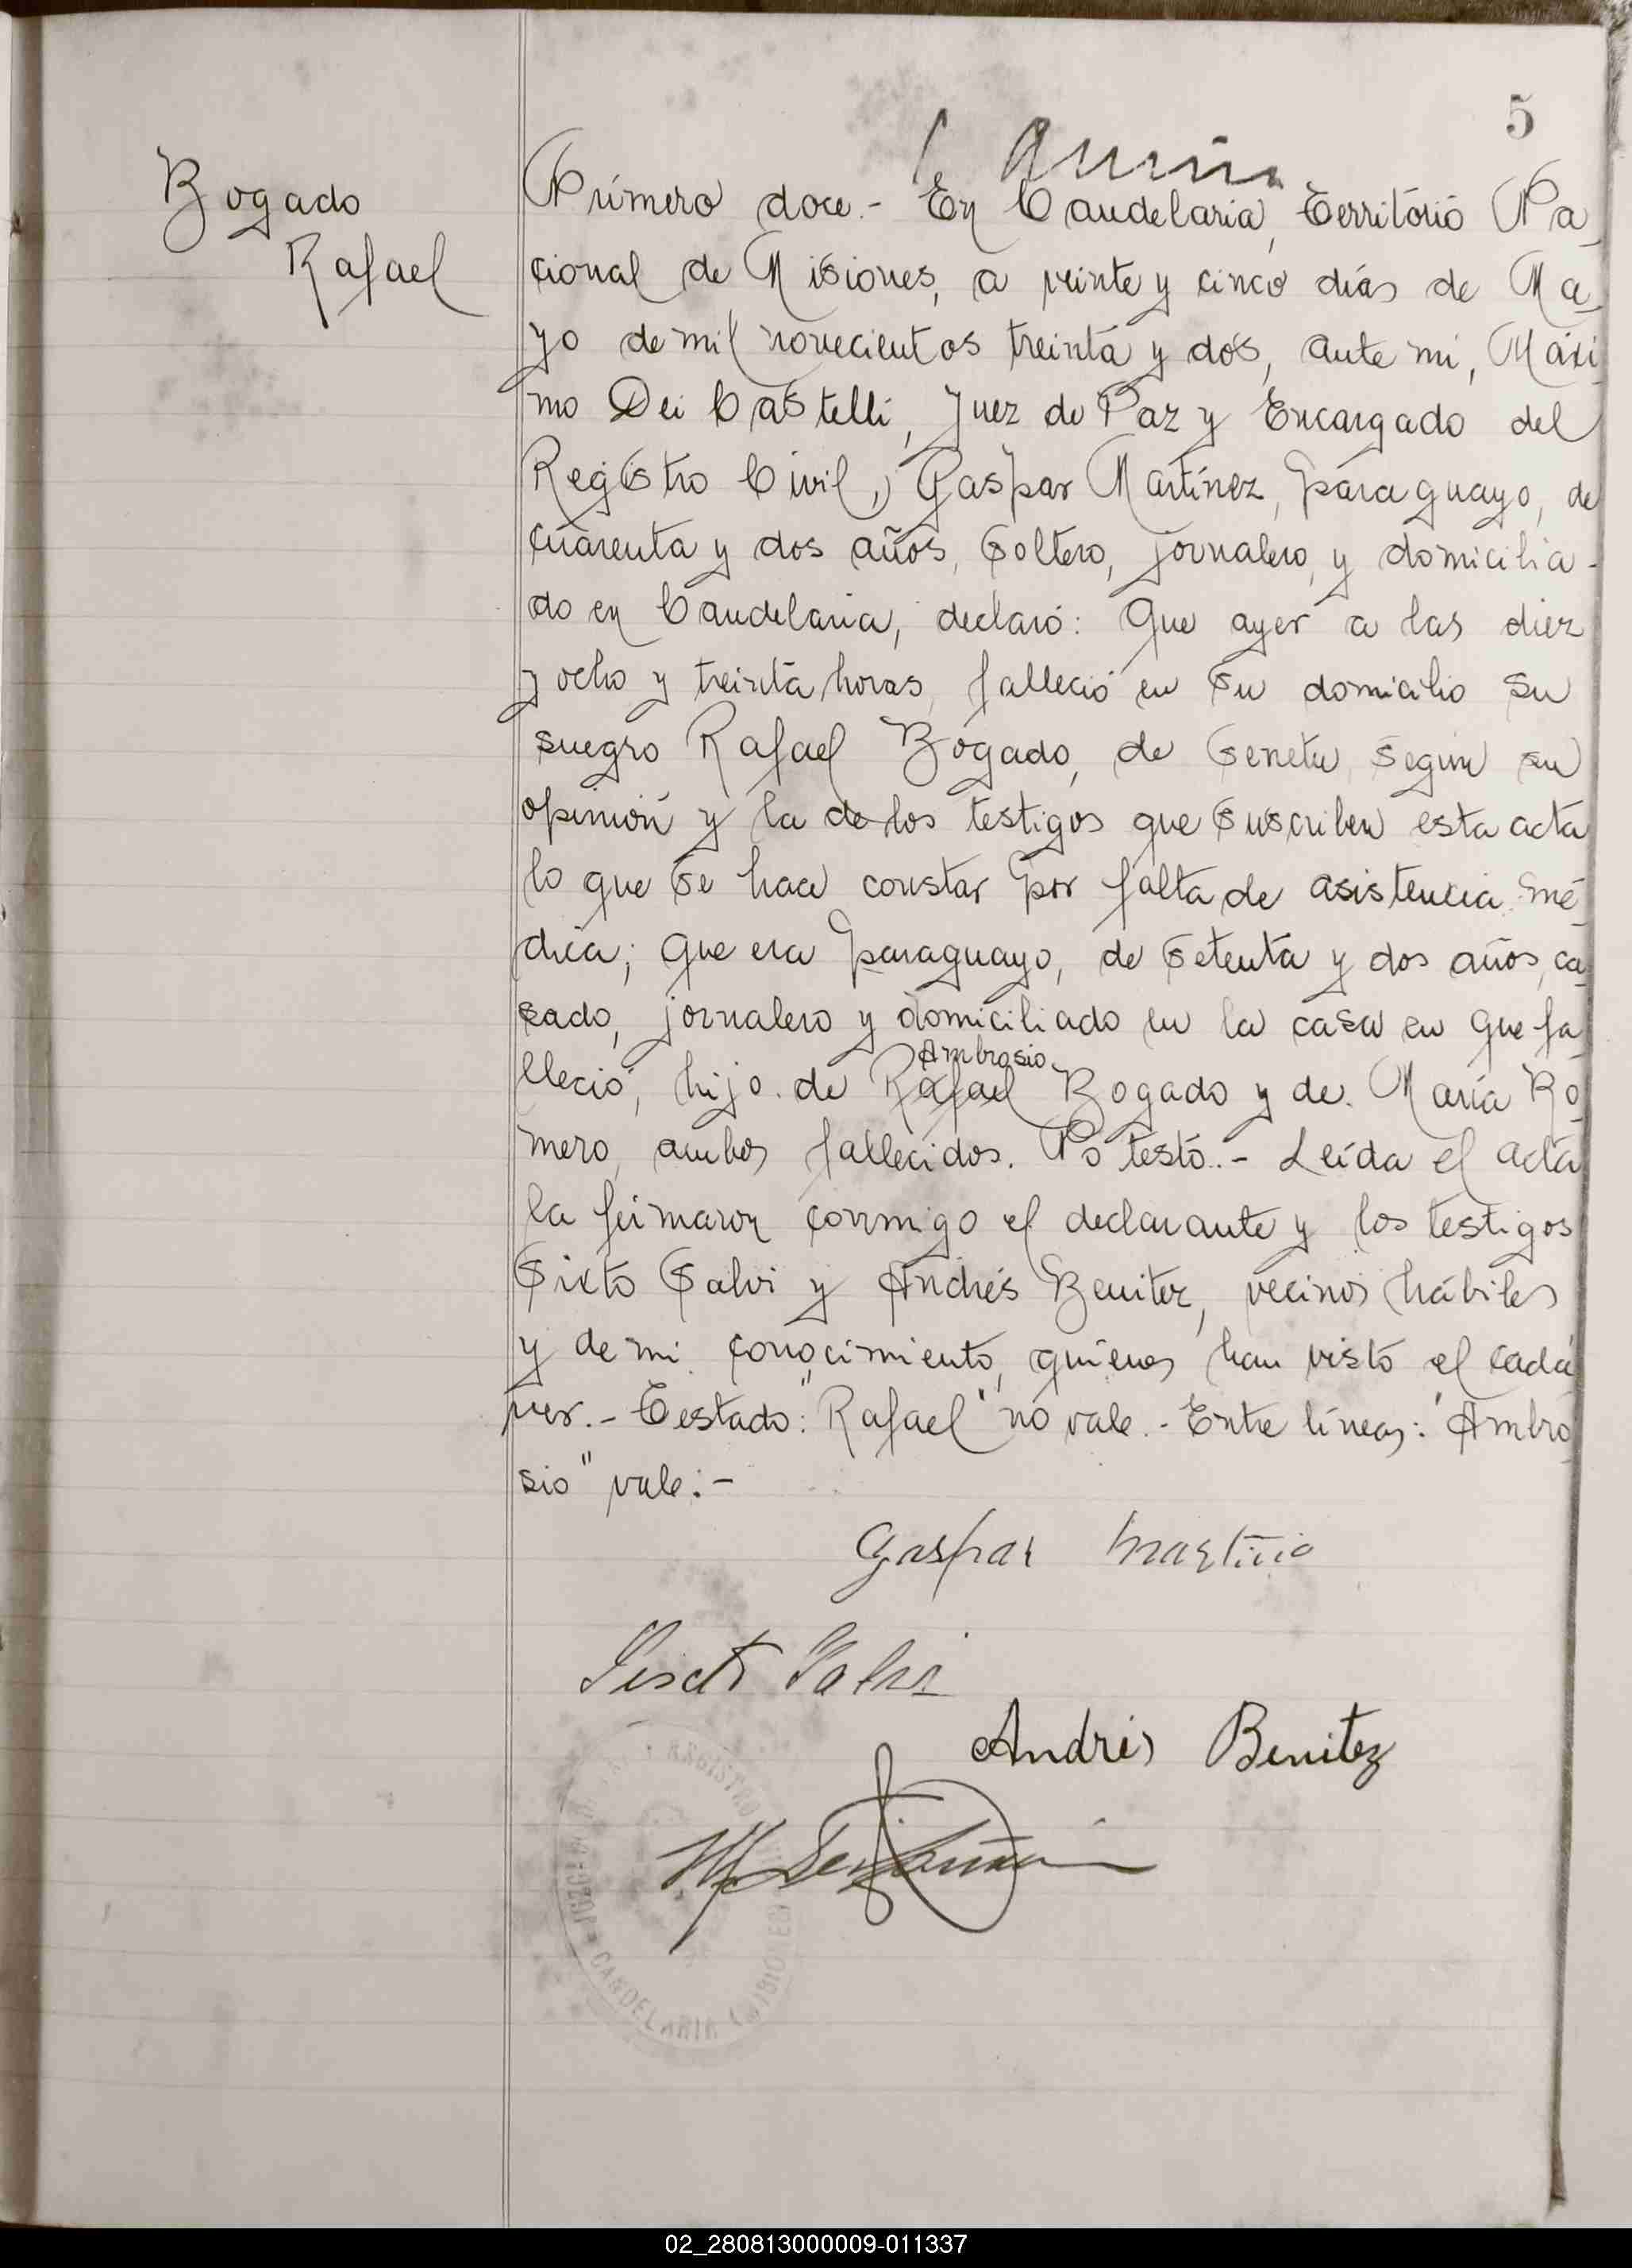 5
Bogado
Rafael
Número doce.- En Candelaria, Territorio Na-
cional de Misiones, a veinte y cinco días de Ma-
yo de mil novecientos treinta y dos, ante mi, Máxi-
mo Dei Castelli, Juez de Paz y Encargado del
Registro Civil, Gaspar Martínez, paraguayo, de
cuarenta y dos años, soltero, jornalero, y domicilia-
do en Candelaria, declaró: Que ayer a las diez
y ocho y treinta horas, falleció en su domicilio su
suegro Rafael Bogado, de senetu, según su
opinión y la de los testigos que suscriben esta acta
lo que se hace constar por falta de asistencia mé-
dica; que era paraguayo, de setenta y dos años, ca-
sado, jornalero y domiciliado en la casa en que fa-
Ambrosio
lleció, hijo de Rafael Bogado y de María Ro-
mero, ambos fallecidos. No testó.- Leída el acta
la firmaron conmigo el declarante y los testigos
Sixto Salvi y Andrés Benitez, vecinos hábiles
y de mi conocimiento, quienes han visto el cadá
ver.- Testado: "Rafael" no vale.- Entre líneas: "Ambro
sio" vale:-
Gaspar
Salvi
Andrés Benitez
REGISTRO
CANDELARIA
02_280813000009-011337